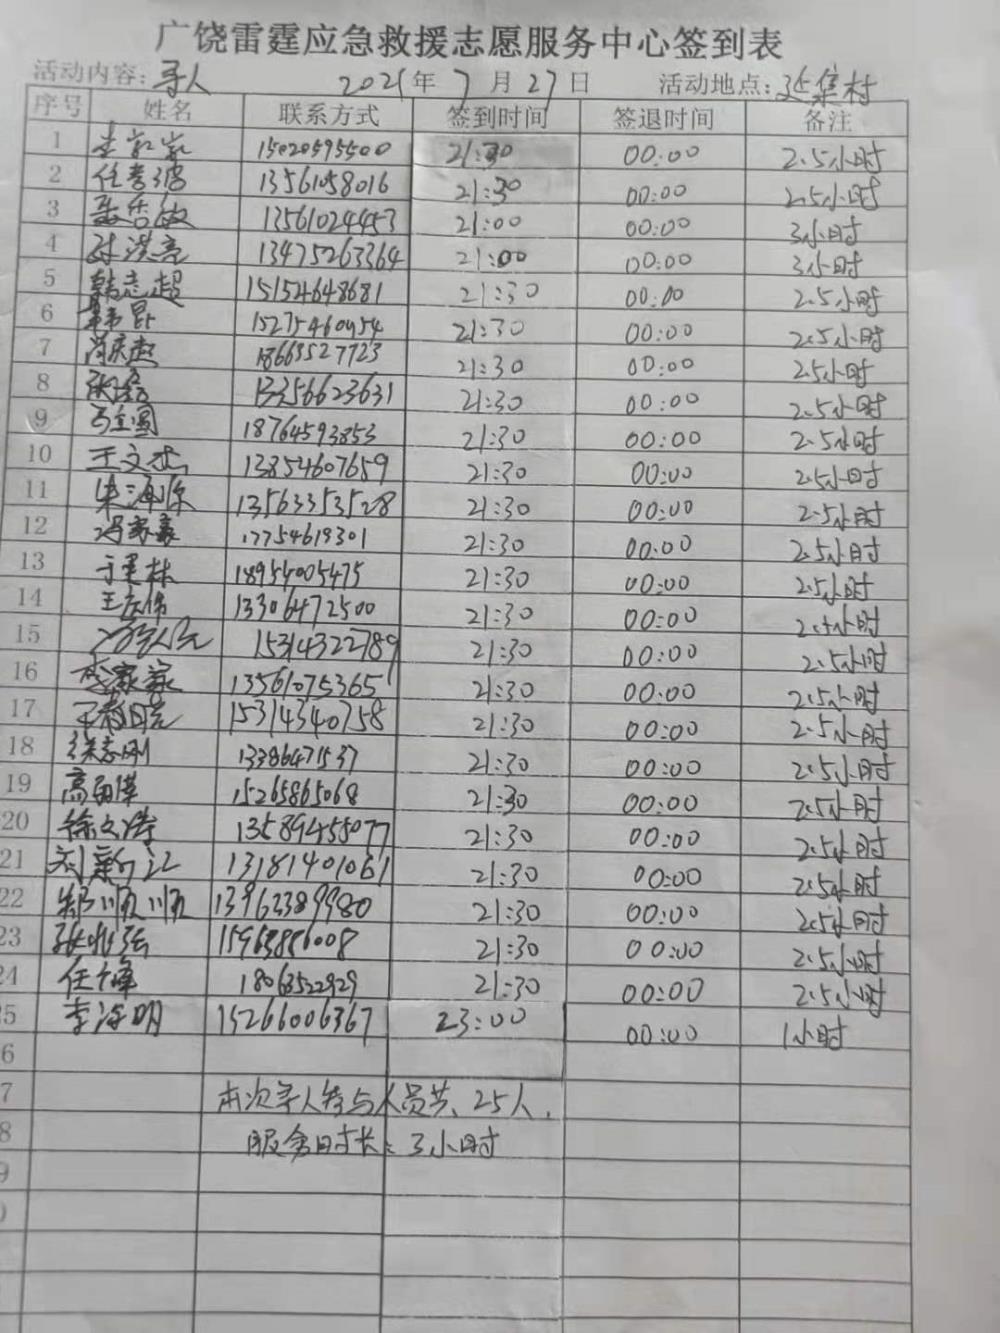 广饶雷霆应急救援志愿服务中心签到表
活动内容：寻人 2021年 7月27日 活动地点：延集村
序号 姓名 联系方式 签到时间 签退时间 备注
1 15020595500 21:30 00:00 2.5小时
2 任秀波 13561058016 21:30 00:00 2.5小时
3 13561024453 21:00 00:00 3小时
4 孙洪亮 13475263364 21:00 00:00 3小时
5 韩志超 15154648681 21:30 00:00 2.5小时
6 韩昆 15275460454 21:30 00:00 2.5小时
7 尚庆超 18663527723 21:30 00:00 2.5小时
8 13356623631 21:30 00:00 2.5小时
9 18764593853 21:30 00:00 2.5小时
10 王文杰 13854607659 21:30 00:00 2.5小时
11 朱海源 13563353528 21:30 00:00 2.5小时
12 冯家豪 17754619301 21:30 00:00 2.5小时
13 于建林 18954005475 21:30 00:00 2.5小时
14 王庆伟 13306472500 21:30 00:00 2.5小时
15 15314322789 21:30 00:00 2.5小时
16 李家豪 13561075365 21:30 00:00 2.5小时
17 15314340758 21:30 00:00 2.5小时
18 徐志刚 13386471537 21:30 00:00 2.5小时
19 15265865068 21:30 00:00 2.5小时
20 徐文涛 13589455077 21:30 00:00 2.5小时
21 刘新江 13181401061 21:30 00:00 2.5小时
22 郑顺顺 13963389980 21:30 00:00 2.5小时
23 15963886008 21:30 00:00 2.5小时
24 任峰 18063522929 21:30 00:00 2.5小时
5 李海明 15266006367 23:00 00:00 1小时
6
7 本次寻人参与人员共、25人，
8 服务时长：3小时
9